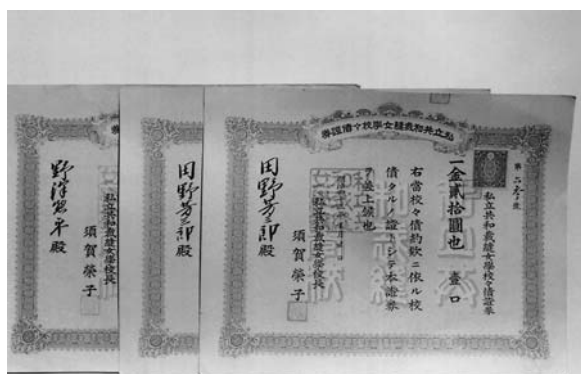 私立共和裁縫女學校々債證券
第六拾號
私立共和裁縫女學校々債證券
一金貳拾圓也 壹口
右當校々債約款ニ依ル校
債タルノ證トシテ本證券
ヲ差上候也
私立共和裁縫女學校長
須賀榮子
田野芳三郎殿
須賀榮子
田野芳三郎殿
私立共和裁縫女學校長
須賀榮子
殿